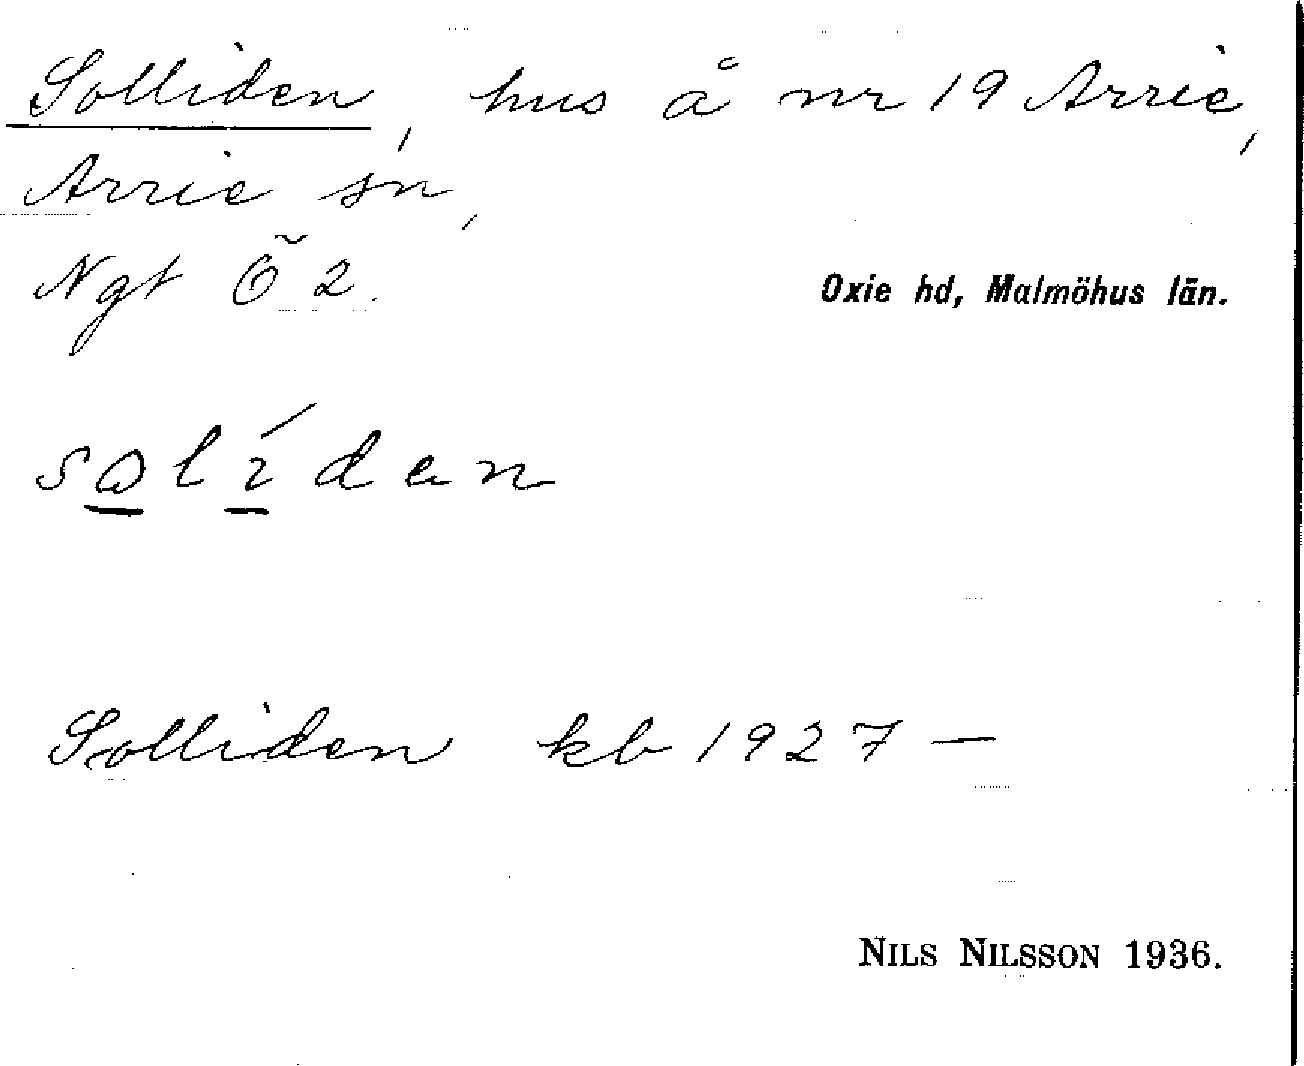 Solliden, hus å nr 19 Arrie,
Arrie sn,
Ngt Ö 2.
Oxie hd, Malmöhus län.
sɷlı́dɐn
Solliden kb 1927 —
NILS NILSSON 1936.